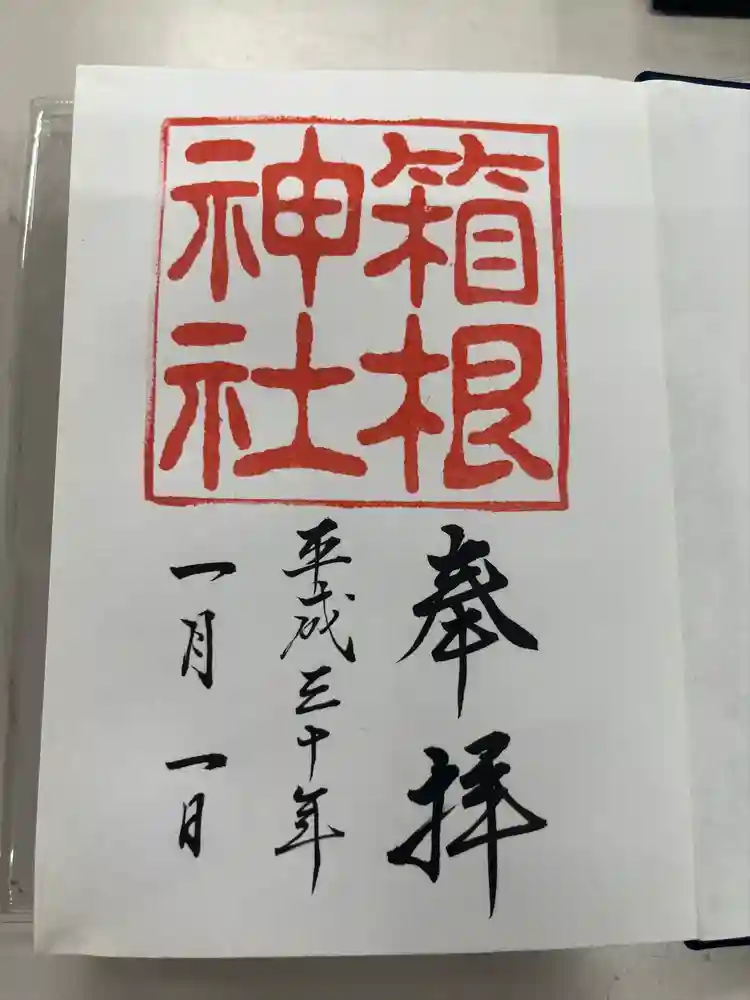 箱根
神社
奉拝
平成三十年
一月一日